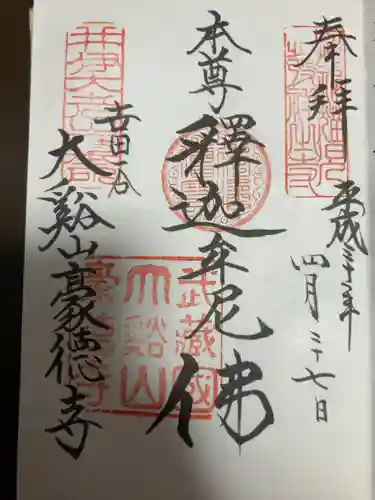 奉拝
平成三十一年
四月二十七日
本尊
釋迦牟尼佛
世田谷
大谿山豪徳寺
武蔵國
大谿山
豪徳寺